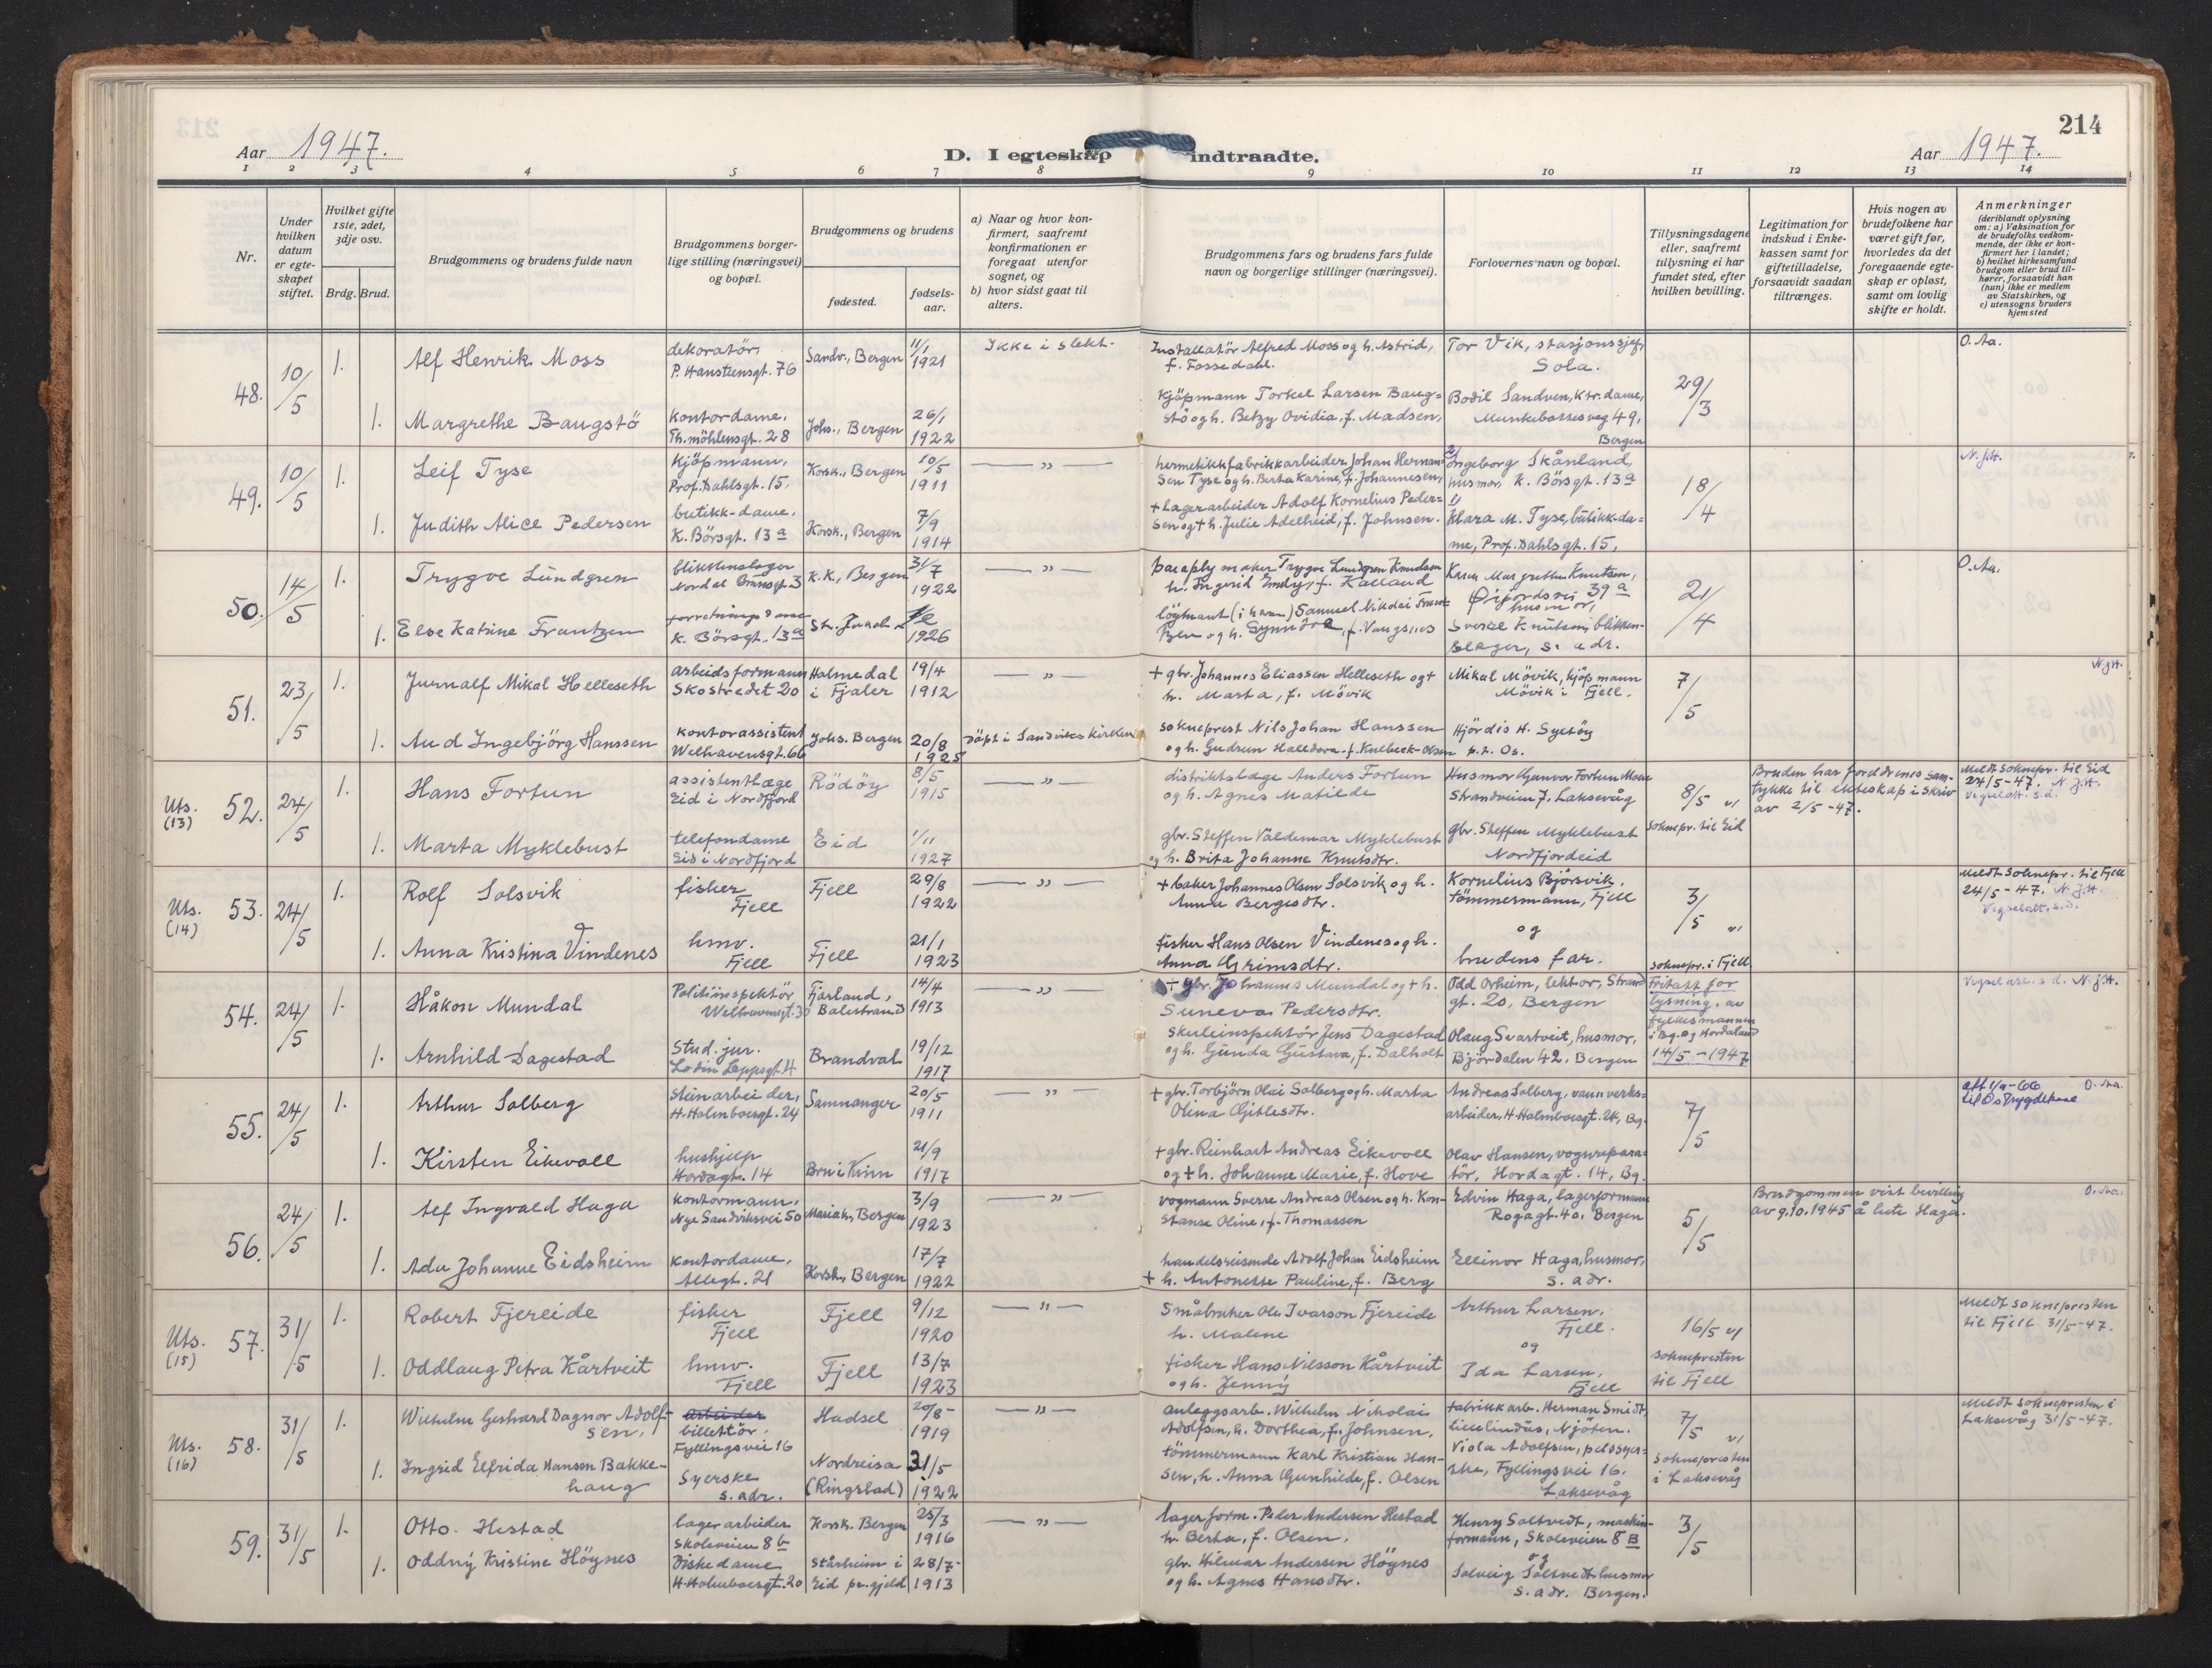 213
214
Aar 1947.
D. I egteskap indtraadte.
Aar 1947.
1 2 3 4 5 6 7 8 9 10 11 12 13 14
Nr.
Under hvilken datum er egteskapet stiftet.
Hvilket gifte 1ste, 2det, 3dje osv.
Brdg. Brud.
Brudgommens og brudens fulde navn
Brudgommens borgerlige stilling (næringsvei) og bopæl.
Brudgommens og brudens
fødested.
fødselsaar.
a) Naar og hvor konfirmert, saafremt konfirmationen er foregaat utenfor sognet, og
b) hvor sidst gaat til alters.
Brudgommens fars og brudens fars fulde navn og borgerlige stillinger (næringsvei).
Forlovernes navn og bopæl.
Tillysningsdagene eller, saafremt tillysning ei har fundet sted, efter hvilken bevilling.
Legitimation for indskud i Enkekassen samt for giftetilladelse, forsaavidt saadan tiltrænges.
Hvis nogen av brudefolkene har været gift før, hvorledes da det foregaaende egteskap er opløst, samt om lovlig skifte er holdt.
Anmerkninger
(deriblandt oplysning om: a) Vaksination for de brudefolks vedkommende, der ikke er konfirmert her i landet; b) hvilket kirkesamfund brudgom eller brud tilhører, forsaavidt han (hun) ikke er medlem av Statskirken, og c) utensogns bruders hjemsted
48. 10/5 1. Alf Henrik Moss
dekoratör, P. Hansteensgt. 76
Sandv., Bergen 11/1 1921
Ikke i slekt.
Installatør Alfred Moss og h. Astrid, f. Fossedahl.
Tor Vik, stasjonssjef, Sola.
29/3
O. Aa.
1. Margrethe Baugstö
kontordame, Th. möhlensgt. 28
Johs., Bergen 26/1 1922
Kjöpmann Torkel Larsen Baugstö og h. Betzy Ovidia, f. Madsen,
Bodil Sandven, ktr.dame, Munkebotsveg 49, Bergen
49. 10/5 1. Leif Tyse
Kjöpmann, Prof. Dahlsgt. 15,
Korsk., Bergen 10/5 1911
— " —
hermetikkfabrikkarbeider Johan Hermansen Tyse og h. Berta Karine, f. Johannesen,
Ingeborg Skånland, husmor, K. Börsgt. 13a
18/4
N. J.H.
1. Judith Alice Pedersen
butikk-dame, K. Börsgt. 13a
Korsk., Bergen 7/9 1914
+ Lagerarbeider Adolf Kornelius Pedersen og + h. Julie Adelheid, f. Johnsen.
Klara M. Tyse, butikk-dame, Prof. Dahlsgt. 15,
50. 14/5 1. Trygve Lundgren
blikkenslager Nordal Brunsgt. 3
K.K., Bergen 31/7 1922
— " —
paraply maker Trygve Lundgren Knudsen h. Ingerid Emdy, f. Kalland
Karen Margrethe Knutsen, 39a husmor,
21/4
O. Aa.
1. Else Katrine Frantzen
K. Börsgt. 13a
St. Jakob 1926
löytnant (i hæren) Samuel Nikolai og h. Synnöve, f. Vangsnes
Sverre Knutsen, blikkenslager, s. adr.
51. 23/5 1. Jurnalf Mikal Helleseth
arbeidsformann Skostredet 20
Holmedal i Fjaler 19/4 1912
— " —
+ gbr. Johannes Eliassen Helleseth og + h. Marta, f. Mövik
Mikal Mövik, kjöpmann Mövik i Fjell.
7/5
N. J.H.
1. Aud Ingebjörg Hanssen
kontorassistent Welhavensgt. 66
Johs. Bergen 20/8 1925
Döpt i Sandvikskirken
sokneprest Nils Johan Hanssen og h. Gudrun Halldora, f. Kulbeck-Olsen
Hjördis H. p.t. Os.
Uts. (13) 52. 24/5 1. Hans Fortun
assistentlæge Eid i Nordfjord
Rödöy 8/5 1915
— " —
distriktslæge Anders Fortun og h. Agnes Matilde
Husmor Gunvor Fortun Moen Strandveien 7, Laksevåg
8/5 v/ soknepr. til Eid
Bruden har foreldrenes samtykke til ekteskap i skriv av 2/5-47.
Meldt soknepr. til Eid 24/5-47. N. J.H. Vigselatt. s.d.
1. Marta Myklebust
telefondame Eid i Nordfjord
Eid 1/11 1927
gbr. Steffen Valdemar Myklebust og h. Brita Johanne Knutsdtr.
gbr. Steffen Myklebust Nordfjordeid
Uts. (14) 53. 24/5 1. Rolf Solsvik
fisker Fjell
Fjell 29/8 1922
— " —
+ baker Johannes Olsen Solsvik og h. Anna Bergesdtr.
Kornelius Bjórsvik, tömmermann, Fjell og
3/5 v/ soknepr. i Fjell
Meldt soknepr. til Fjell 24/5-47. N. J.H. Vigselatt. s.d.
1. Anna Kristina Vindenes
hmv. Fjell
Fjell 21/1 1923
fisker Hans Olsen Vindenes og h. Anna Grimsdtr.
brudens far.
54. 24/5 1. Håkon Mundal
Politiinspektör Welhavensgt. 30
Fjærland, Balestrand 14/4 1913
— " —
+ gbr. Johannes Mundal og + h. Suneva Pedersdtr.
Odd Orheim, lektor, Strandgt. 20, Bergen
Fritatt for lysning, av fylkesmannen i Bg. og Hordaland 14/5-1947
Vigselatt. s.d. N. J.H.
1. Arnhild Dagestad
Stud. jur. Lodin Leppsgt. 4
Brandval 19/12 1917
skuleinspektör Jens Dagestad og h. Gunda Gustava, f. Dalholt
Olaug Svartveit, husmor, Björndalen 42, Bergen
55. 24/5 1. Arthur Solberg
Steinarbeider, H. Holmboesgt. 24
Samnanger 20/5 1911
— " —
+ gbr. Torbjörn Olai Solberg og h. Marta Olina Gitlesdtr.
Andreas Solberg, vannverksarbeider, H. Holmboesgt. 24, Bg.
7/5
att 1/9-66 til Os Trygdekasse O. Aa.
1. Kirsten Eikevoll
hushjelp Hordagt. 14
Bru i Kinn 21/9 1917
+ gbr. Reinhart Andreas Eikevoll og + h. Johanne Marie, f. Hove
Olav Hansen, vognreparatör, Hordagt. 14, Bg.
56. 24/5 1. Alf Ingvald Haga
kontormann, Nye Sandviksvei 50
Mariak., Bergen 3/9 1923
— " —
vogmann Sverre Andreas Olsen og h. Konstanse Oline, f. Thomassen
Edvin Haga, lagerformann Rogagt. 40, Bergen
5/5
Brudgommen vist bevilling av 9.10.1945 å hete Haga.
O. Aa.
1. Ada Johanne Eidsheim
kontordame, Allegt. 21
Korsk., Bergen 17/7 1922
handelsreisende Adolf Johan Eidsheim + h. Antonette Pauline, f. Berg
Ellinor Haga, husmor, s. adr.
Uts. (15) 57. 31/5 1. Robert Fjereide
fisker Fjell
Fjell 9/12 1920
— " —
Småbruker Ole Ivarson Fjereide h. Malene
Arthur Larsen, Fjell. og
16/5 v/ soknepresten til Fjell
Meldt soknepresten til Fjell 31/5-47.
1. Oddlaug Petra Kårtveit
hmv. Fjell
Fjell 13/7 1923
fisker Hans Nilsson Kårtveit og h. Jenny
Ida Larsen, Fjell
Uts. (16) 58. 31/5 1. Wilhelm Gerhard Dagnor Adolfsen,
arbeider billettör, Fyllingsvei 16
Hadsel 20/8 1919
— " —
anleggsarb. Wilhelm Nikolai Adolfsen, h. Dorthea, f. Johnsen,
fabrikkarb. Herman Smidt,
7/5 v/ soknepresten i Laksevåg
Meldt soknepresten i Laksevåg 31/5-47.
1. Ingrid Elfrida Hansen Bakkehaug
Syerske s. adr.
Nordreisa (Ringstad) 31/5 1922
tömmermann Karl Kristian Hansen, h. Anna Gunhilde, f. Olsen
Viola Adolfsen, pelssyerske, Fyllingsvei 16, Laksevåg
59. 31/5 1. Otto Hestad
lagerarbeider Skoleveien 8b
Korsk. Bergen 25/3 1916
— " —
Lagerform. Peder Andersen Hestad h. Berta, f. Olsen,
Henry Soltvedt, maskinformann, Skoleveien 8B og
3/5
1. Oddny Kristine Höynes
Diskedame H. Holmboesgt. 20
Stårheim i Eid pr.gjeld 28/7 1913
gbr. Hilmar Andersen Höynes og h. Agnes Hansdtr.
Solveig Soltvedt husmor s. adr. Bergen.